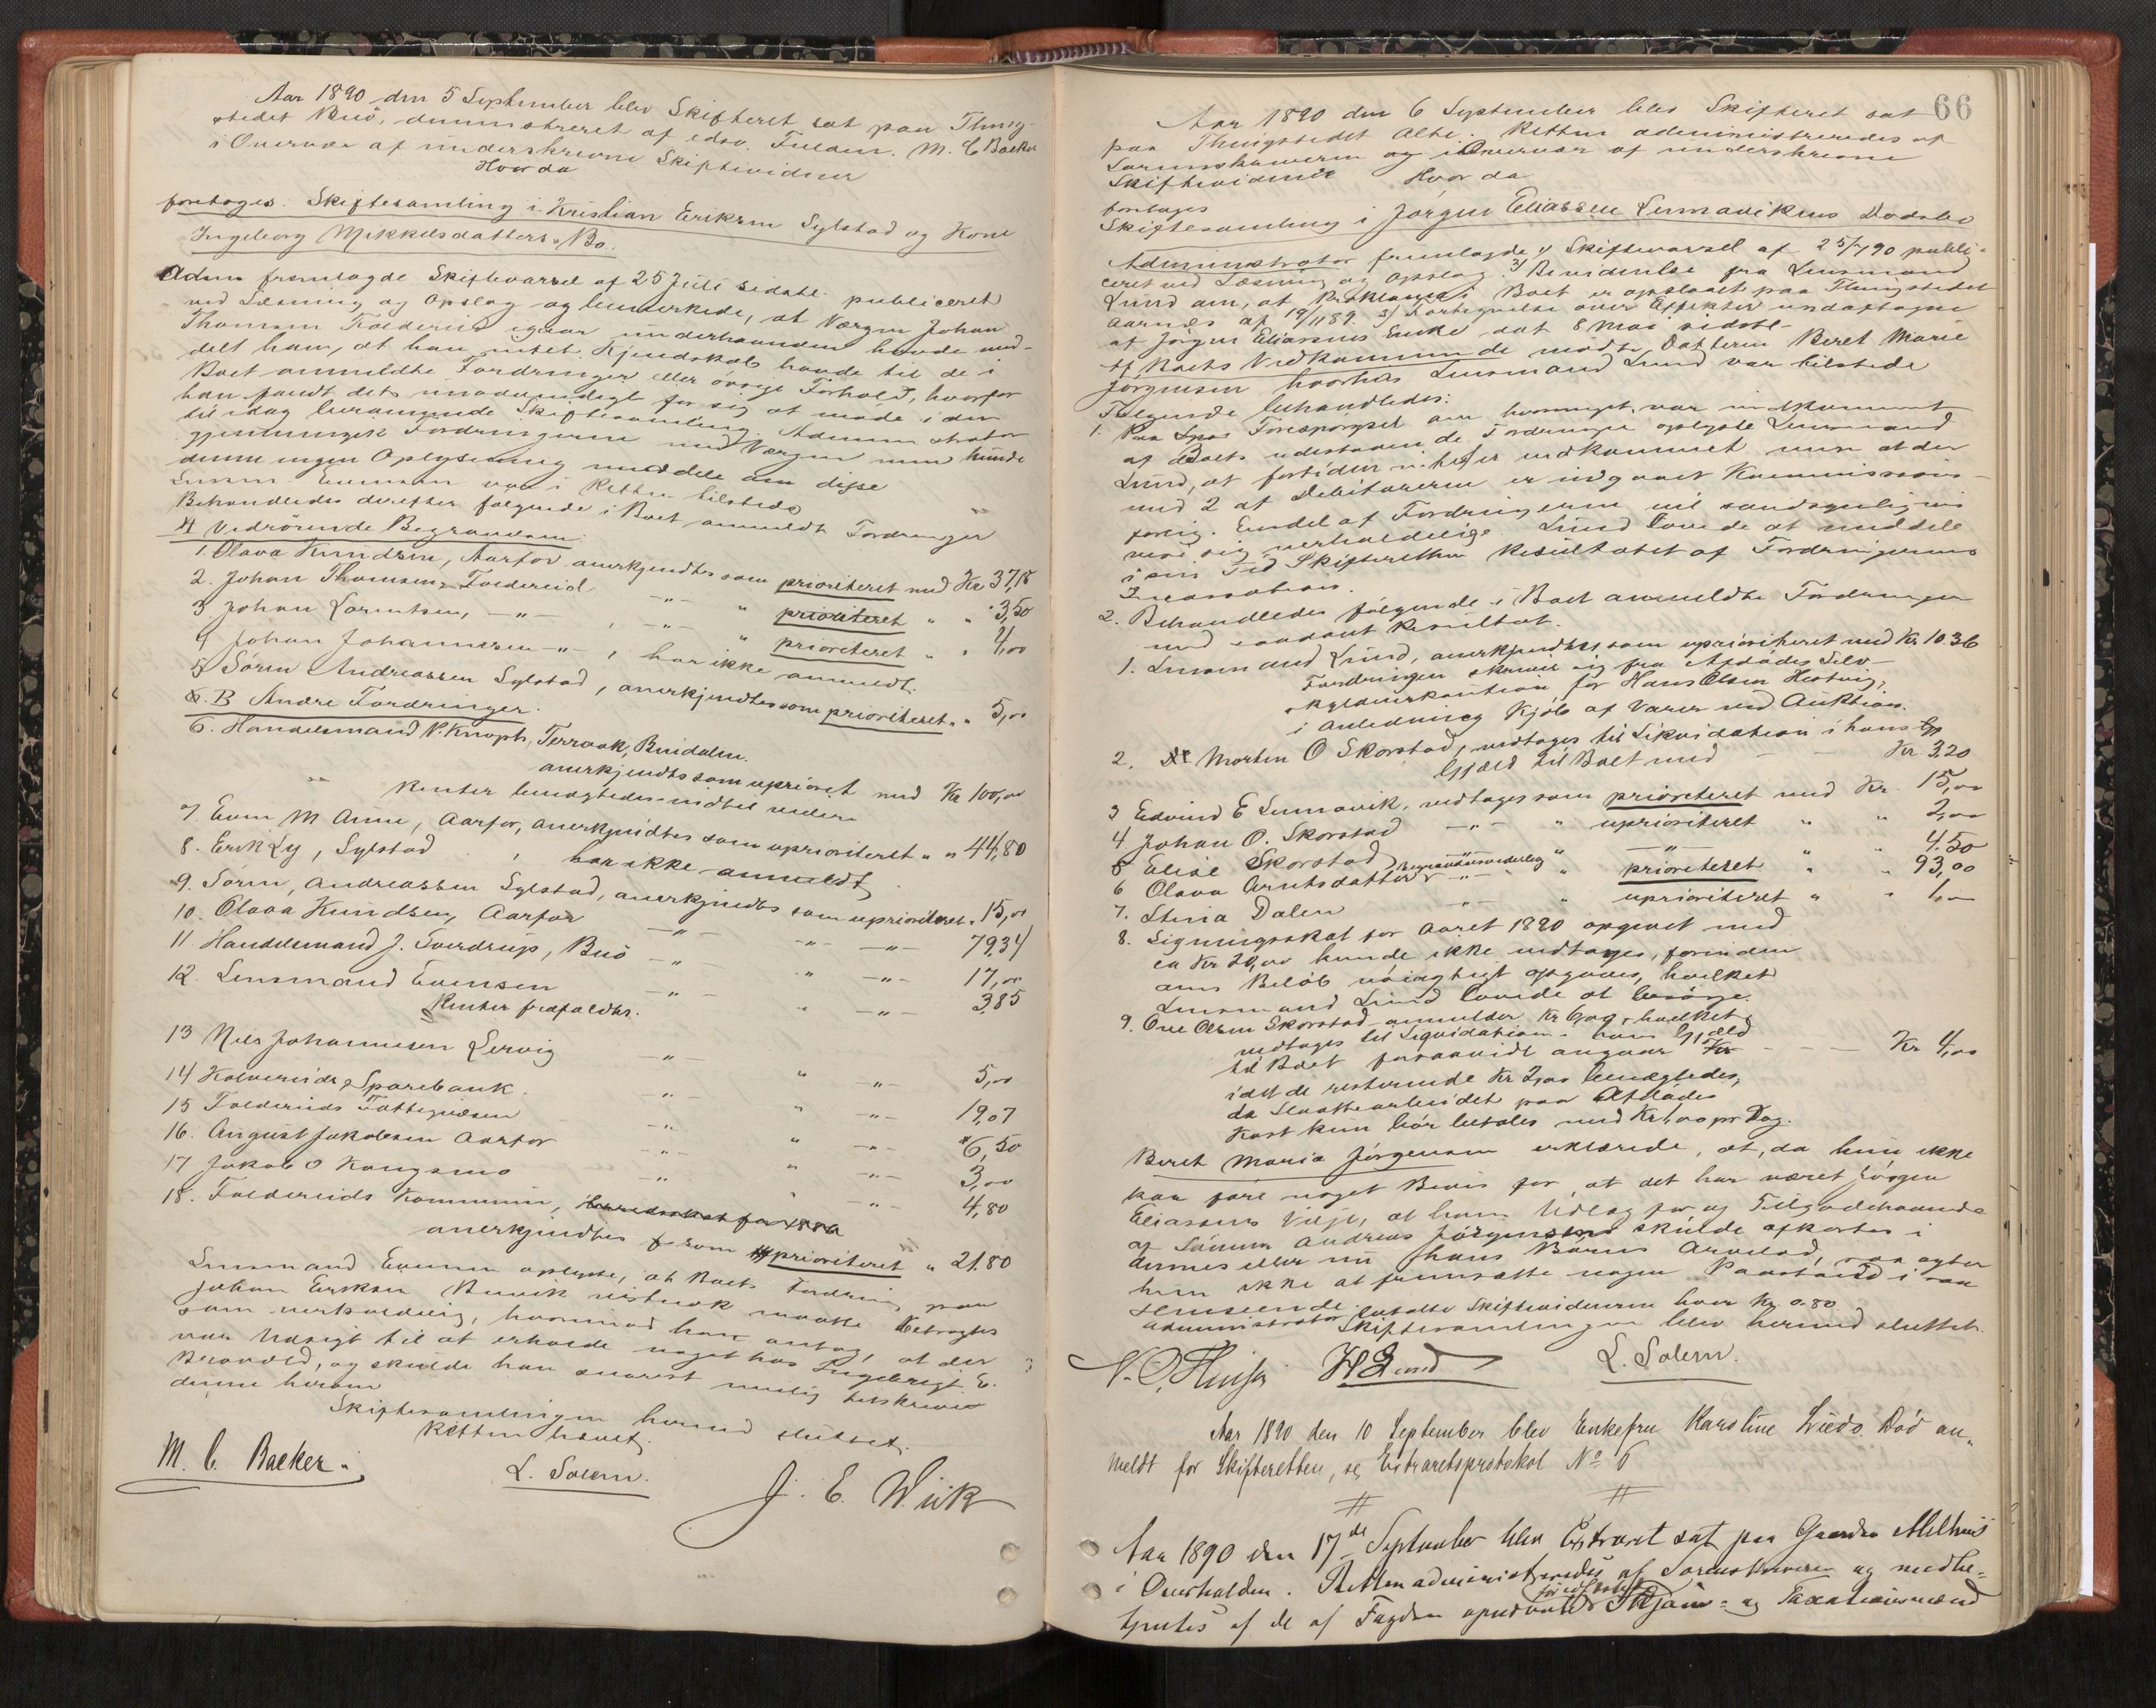 Aar 1890 den 5 September blev Skifteret sat paa Thing-
stedet Buö, administreret af edsv. Fuldm. M. C Backer
i Overvær af underskrevne Skiftevidner
Hvorda
foretoges: Skiftesamling i Kristian Eriksen Sylstad og Kone
Ingeborg Mikkelsdatters Bo.
Adm. fremlagde Skiftevarsel af 25 Juli sidstl. publiceret
ved Læsning og Opslag og bemærkede, at Værgen Johan
Thomsen Foldereid igaar underhaanden havde med-
delt ham, at han intet Kjendskab havde til de i
Boet anmeldte Fordringer eller övrige Forhold, hvorfor
han fandt det unödvendigt for sig at möde i den
til idag berammede Skiftesamling. Administrator
gjennemgik Fordringerne med Værgen men kunde
denne ingen Oplysning meddele om disse
Lensm. Evensen var i Retten tilstede
Behandledes derefter følgende i Boet anmeldte Fordringer
A Vedrörende Begravelsen:
1. Olava Knudsen, Aarfor anerkjendtes som prioriteret med Kr 37,18
2. Johan Thomsen, Foldereid -"- " prioriteret " " 3,50
3 Johan Lorentsen, -"- , -"- " prioriteret " " 4,00
4 Johan Johannesen -"- , har ikke anmeldt.
5 Sören Andreassen Sylstad, anerkjendtes som prioriteret " " 5,00
B Andre Fordringer.
6. Handelsmand N. Knoph, Terraak, Bindalen.
anerkjendtes som uprioret med Kr 100,00
Renter benægtedes indtil videre
7. Even M Aune, Aarfor, anerkjendtes som uprioriteret " " 44,80
8. Erik Ly, Sylstad , har ikke anmeldt
9. Sören Andreassen Sylstad, anerkjendtes som uprioriteret " 15,00
10. Olava Knudsen, Aarfor -"- -"- -"- 79,34
11 Handelsmand J. Sverdrup, Buö -"- " -"- 17,00
12. Lensmand Evensen -"- " -"- 3,85
Renter frafaldtes.
13 Nils Johannesen Lervig -"- " -"- 5,00
14 Kolvereids Sparebank. -"- " -"- 19,07
15 Foldereids Fattigvæsen -"- " -"- 6,50
16. August Jakobsen Aarfor -"- " -"- 3,00
17 Jakob O Kongsmo -"- " -"- 4,80
18. Foldereids Kommune,
anerkjendtes som prioriteret " 21.80
Lensmand Evensen oplyste, at Boets Fordring paa
Johan Eriksen vistnok maatte betragtes
som værdilös, hvorimod han antog, at der
var Udsigt til at erholde noget hos Ingebrigt E.
og skulde han snarest mulig tilskrives
denne herom
Skiftesamlingen hermed sluttet.
Retten hævet.
M. C. Backer. L. Solem. J. E. Wiik
66
Aar 1890 den 6 September blev Skifteret sat
paa Thingstedet Alte. Retten administreredes af
Sorenskriveren og i Overvær af underskrevne
Skiftevidner Hvor da
foretoges
Skiftesamling i Jörgen Eliassen Lemavikens Dödsbo
Administrator fremlagde 1) Skiftevarsel af 25/7 90 publi-
ceret ved Læsning og Opslag. 2) Bevidnelse fra Lensmand
Lund om, at Proklama i Boet er opslaaet paa Thingstedet
Aarnes af 19/11 89. 3) Fortegnelse over Effekter undtagne
af Jörgen Eliassens Enke dat 8 Mai sidstl.
Af Boets Vedkommende mödte Datteren Beret Marie
Jörgensen hvorhos Lensmand Lund var tilstede
Fölgende behandledes:
1. Paa Forespörgsel om hvormeget var indkommet
af Boets udestaaende Fordringer oplyste Lensmand
Lund, at fortiden intet er indkommet men at der
med 2 af Debitorerne er indgaaet Kommissions-
forlig. Endel af Fordringerne vil sandsynligvis
vise sig uerholdelige. Lund lovede at meddele
i sin Tid Skifteretten Resultatet af Fordringernes
Incassation.
2. Behandledes fölgende i Boet anmeldte Fordringer
med saadant Resultat.
1. Lensmand Lund, anerkjendtes som uprioriteret med Kr 10.36
Fordringen skriver sig fra Afdödes Selv-
skyldnerkaution for Hans Olsen
i Anledning Kjöb af Varer ved Auktion.
2. Morten O Skorstad, vedtages til Likvidation i hans
Gjæld til Boet med - - Kr. 3,20
3 Edvind E Lemavik, vedtages som prioriteret med Kr. 15,00
4 Johan O. Skorstad -"- " uprioriteret " " 2,00
5 Elise Skorstad -"- " -"- " " 4.50
6 Olava Arntsdatter -"- " prioriteret " " 93,00
7. Stina Dalen -"- " uprioriteret " " 1,00
8. Ligningsskat for Aaret 1890 opgivet med
ca Kr 20,00 kunde ikke vedtages, forinden
dens Belöb nöiagtigt opgives, hvilket
Lensmand Lund lovede at besörge.
9. Ove Olsen Skorstad anmelder Kr 6,00, hvilket
vedtages til Liquidation i hans Gjæld
til Boet forsaavidt angaar - - - Kr 4,00
idet de resterende Kr 2,00 benægtedes,
da Slaattearbeidet paa Afdödes
Kost kun bör betales med Kr 1,00 pr Dag.
Beret Maria Jörgensen erklærede, at, da hun ikke
kan före noget Bevis for, at det har været Jörgen
Eliassens Vilje, at hans Udlæg for og Tilgodehavende
af Sönnen Andreas Jörgensen skulde afkortes i
dennes eller nu hans Börns Arvelod, saa agter
hun ikke at fremsætte nogen Paastand i saa
Henseende.
Administrator betalte Skiftevidnerne hver Kr. 0.80.
Skiftesamlingen blev hermed sluttet.
H Lund L. Solem.
Aar 1890 den 10 September blev Enkefru Karoline Död an-
meldt for Skifteretten, se Extraretsprotokol No 6
Aar 1890 den 17de September blev Extraret sat paa Gaarden Melhus
i Overhalden. Retten administreredes af Sorenskriveren og medbe-
tjentes af de af Fogden opnævnte Skjöns- og Taxationsmænd